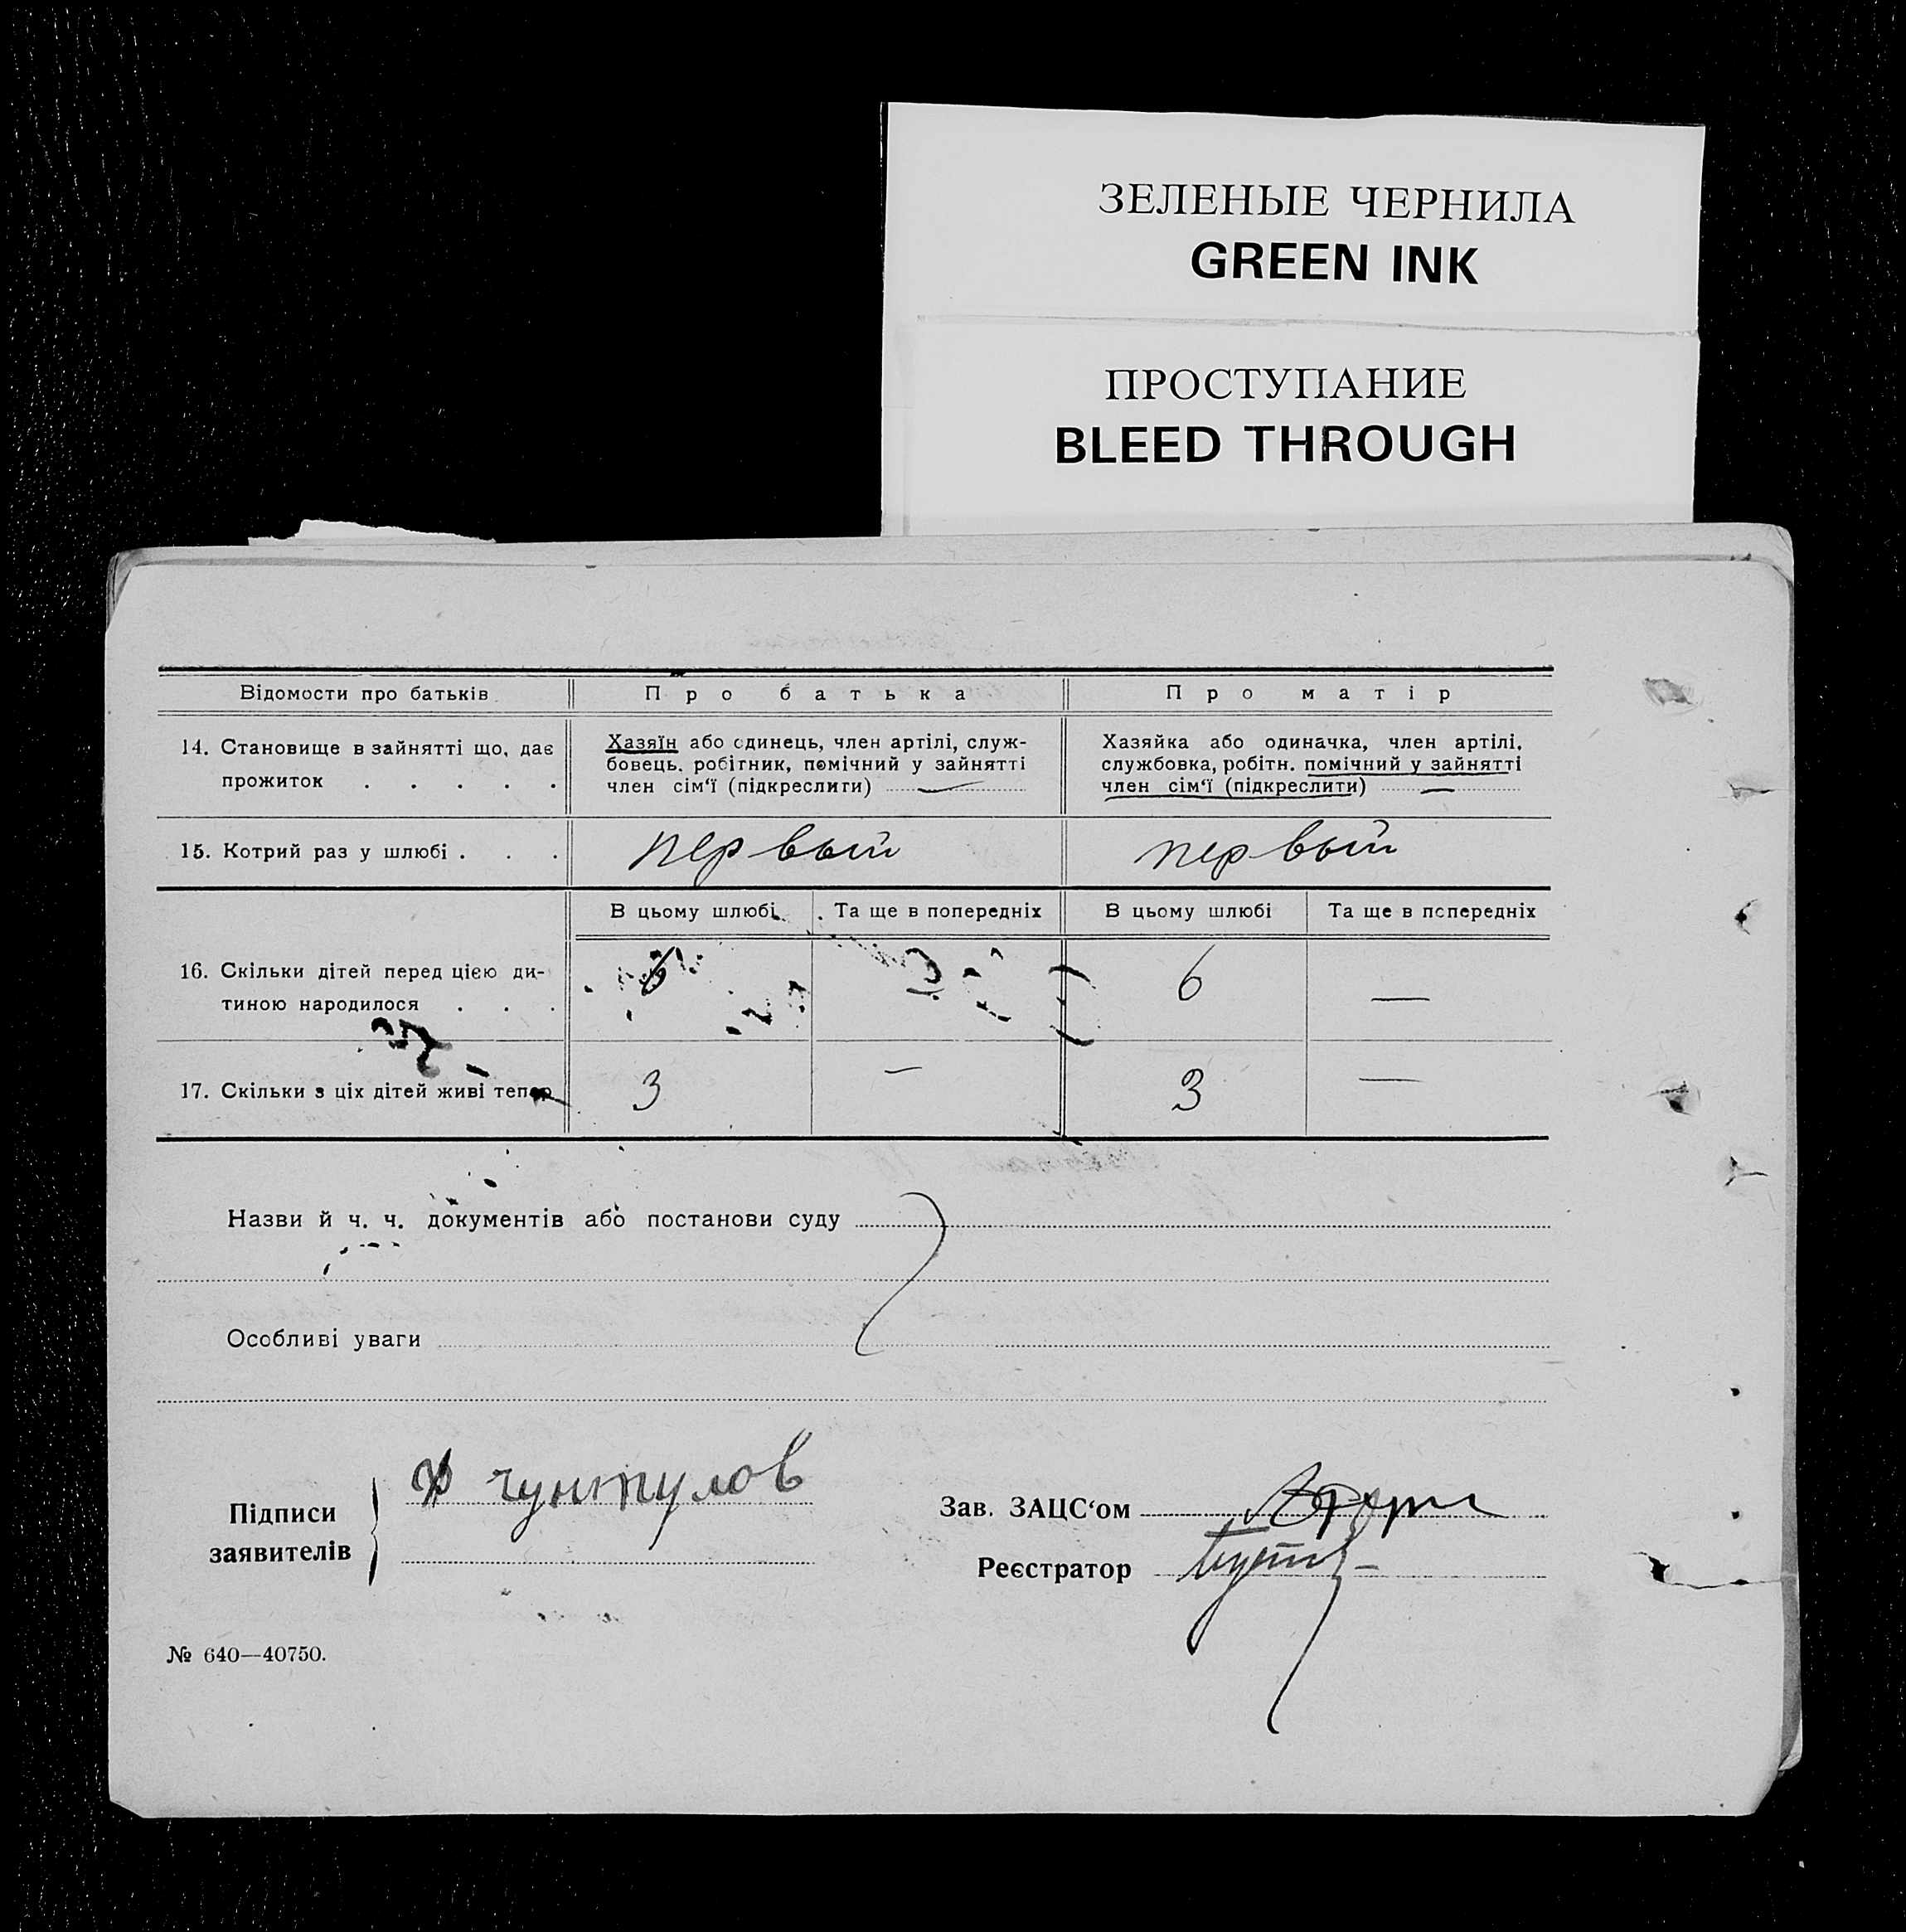 ЗЕЛЕНЫЕ ЧЕРНИЛА
GREEN INK
ПРОСТУПАНИЕ
BLEED THROUGH
Відомости про батьків
Про батька
Про матір
14. Становище в зайнятті що, дає
прожиток . . . . .
Хазяїн або єдинець, член артілі, служ-
бовець, робітник, помічний у зайнятті
член сім‘ї (підкреслити)
Хазяйка або одиначка, член артілі,
службовка, робітн. помічний у зайнятті
член сім‘ї (підкреслити)
15. Котрий раз у шлюбі . . .
первый
первый
В цьому шлюбі
Та ще в попередніх
В цьому шлюбі
Та ще в попередніх
16. Скільки дітей перед цією ди-
тиною народилося . . .
6
6
—
17. Скільки з ціх дітей живі тепер
3
—
3
—
Назви й ч. ч. документів або постанови суду
Особливі уваги
Підписи
заявителів
чунтулов
Зав. ЗАЦС‘ом
Реєстратор
№ 640—40750.